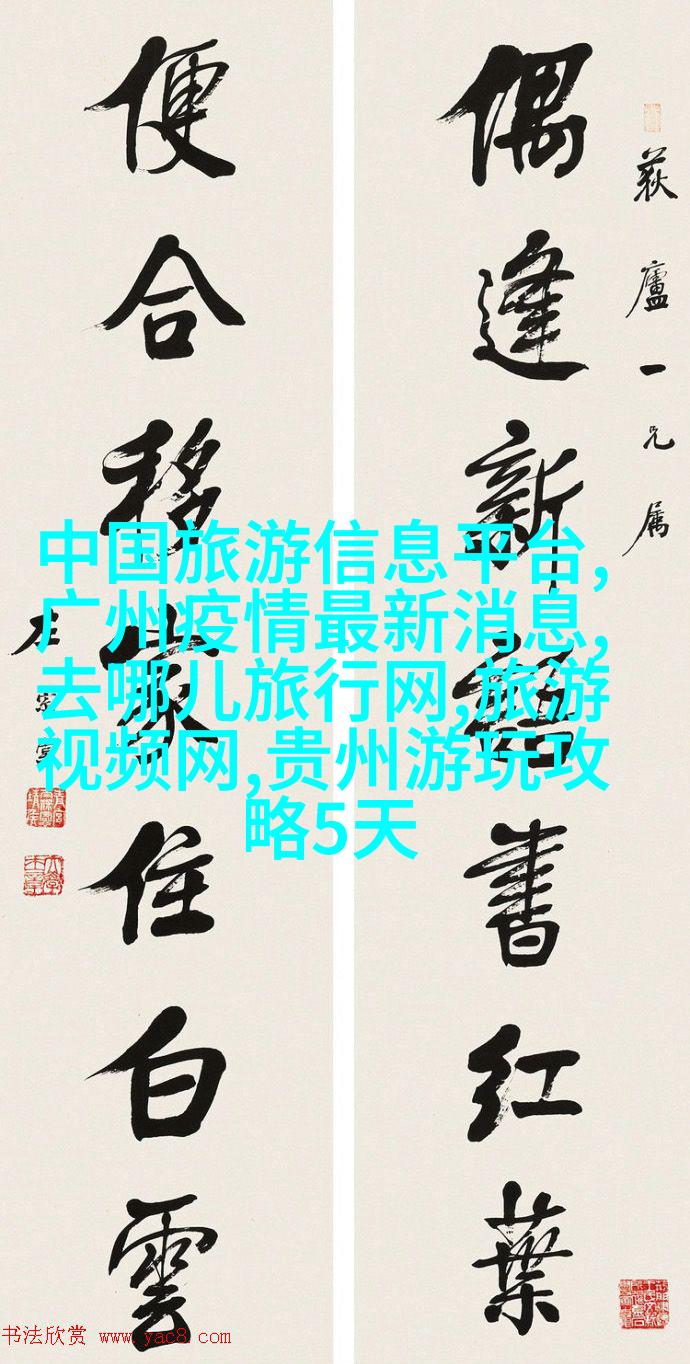 偶逢新語書红葉
荻廬一兄属
便合移家住白雲
左宗棠
中国旅游信息平台,
广州疫情最新消息,
去哪儿旅行网,旅游
视频网,贵州游玩攻
略5天
书法欣赏 www.yac8.com